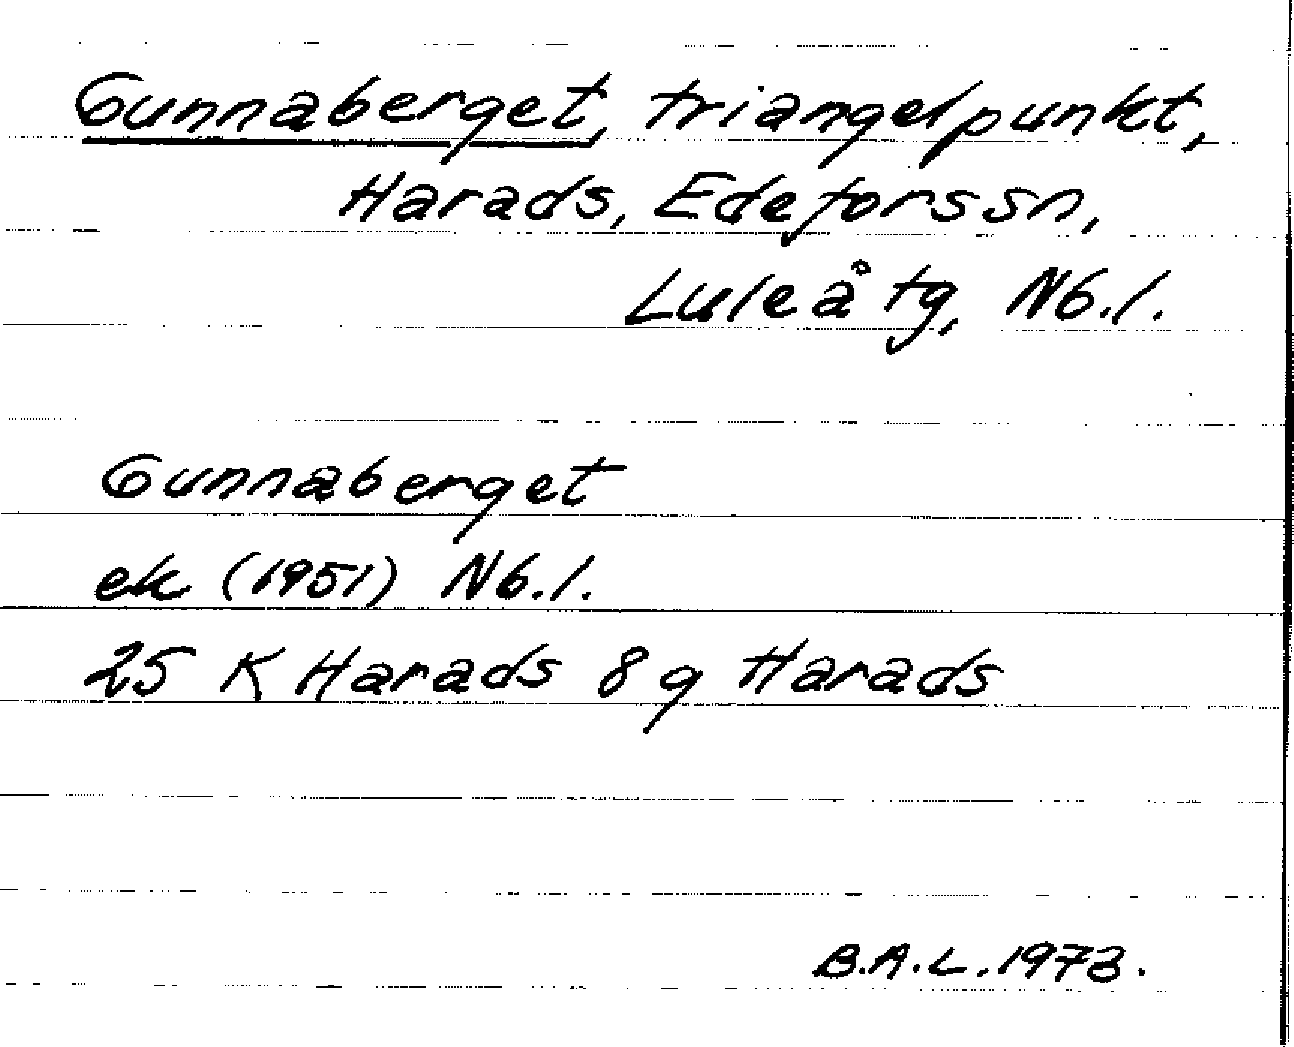 Gunnaberget, triangelpunkt,
Harads, Edeforssn,
Luleå tg, Nb.l.
Gunnaberget
ek (1951) Nb.l.
25 K Harads 8 g Harads
B.A.L. 1973.